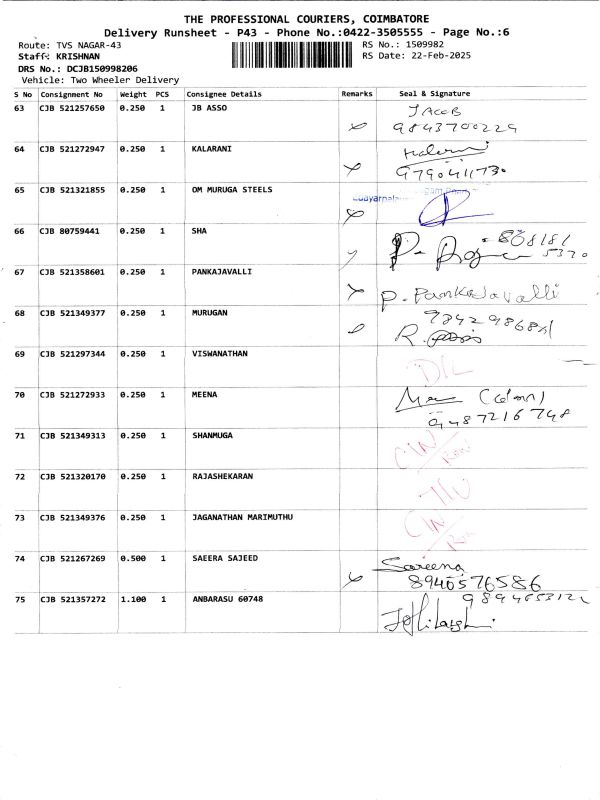 THE PROFESSIONAL COURIERS, COIMBATORE
Delivery Runsheet - P43 - Phone No.:0422-3505555 - Page No.:6
Route: TVS NAGAR-43 RS No.: 1509982
Staff: KRISHNAN RS Date: 22-Feb-2025
DRS No.: DCJB150998206
Vehicle: Two Wheeler Delivery
S No Consignment No Weight PCS Consignee Details Remarks Seal & Signature
63 CJB 521257650 0.250 1 JB ASSO JACOB
9843700229
64 CJB 521272947 0.250 1 KALARANI Kalarani
9790411730
65 CJB 521321855 0.250 1 OM MURUGA STEELS
66 CJB 80759441 0.250 1 SHA
67 CJB 521358601 0.250 1 PANKAJAVALLI P. Pankajavalli
68 CJB 521349377 0.250 1 MURUGAN
69 CJB 521297344 0.250 1 VISWANATHAN D/L
70 CJB 521272933 0.250 1 MEENA
9487216748
71 CJB 521349313 0.250 1 SHANMUGA
72 CJB 521320170 0.250 1 RAJASHEKARAN
73 CJB 521349376 0.250 1 JAGANATHAN MARIMUTHU
74 CJB 521267269 0.500 1 SAEERA SAJEED Sareena
8946576586
75 CJB 521357272 1.100 1 ANBARASU 60748